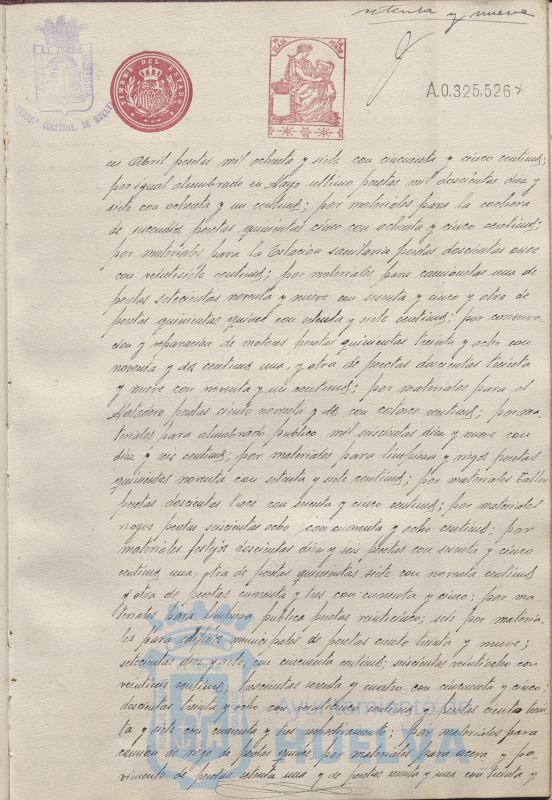 setenta y nueve
TIMBRE DEL ESTADO
A.0.325.526
en Abril pesetas mil ochenta y siete con cincuenta y cinco centims;
por igual alumbrado en Mayo ultimo pesetas mil doscientas diez y
siete con ochenta y un centims; por materiales para la cochera
de incendios pesetas quinientas cinco con ochenta y cinco centims;
por materiales para la Estacion sanitaria pesetas doscientas once
con veintisiete centims; por materiales para camionetas una de
pesetas setecientas noventa y nueve con sesenta y cinco y otra de
pesetas quinientas quince con setenta y siete centims; por conserva-
cion y reparación de motores pesetas quinientas treinta y ocho con
noventa y dos centims una, y otra de pesetas doscientas treinta
y nueve con noventa y un centims; por materiales para el
Matadero pesetas ciento noventa y dos con catorce centims; por ma-
teriales para alumbrado publico mil seiscientas diez y nueve con
diez y seis centims; por materiales para limpieza y riegos pesetas
quinientas noventa con setenta y siete centims; por materiales Taller
pesetas doscientas trece con sesenta y cinco centims; por materiales
riegos pesetas seiscientas ocho con cuarenta y ocho centims; por
materiales festejos doscientas diez y seis pesetas con sesenta y cinco
centims una, otra de pesetas quinientas siete con noventa centims
y otra de pesetas cuarenta y tres con cuarenta y cinco; por ma-
teriales para limpieza publica pesetas veinticinco; seis por materia-
les para edificios municipales de pesetas ciento treinta y nueve;
setecientas diez y siete, con cincuenta centims; seiscientas veintiocho con
veintiseis centims; trescientas sesenta y cuatro con cincuenta y cinco;
doscientas treinta y ocho con veinticinco centims y pesetas ciento trein-
ta y siete con cuarenta y tres respectivamente; por materiales para
camion de riego de pesetas quince; por materiales para acera y pa-
vimento de pesetas setenta una y de pesetas sesenta y una con treinta y
Ayuntamiento de
HUELVA